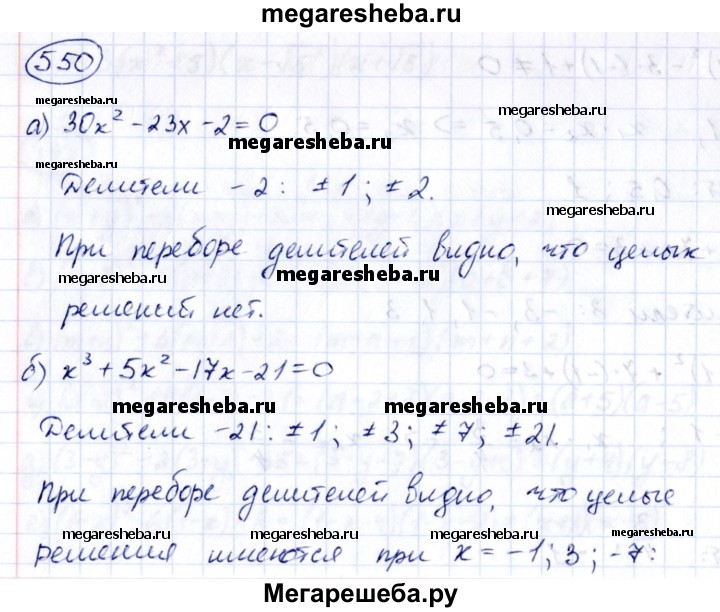 megaresheba.ru
550
megaresheba.ru
а) 30x² - 23x - 2 = 0
megaresheba.ru
Делители -2: ±1; ±2.
megaresheba.ru
При переборе делителей видно, что целых
megaresheba.ru megaresheba.ru
решений нет.
б) x³ + 5x² - 17x - 21 = 0
megaresheba.ru megaresheba.ru
Делители -21: ±1; ±3; ±7; ±21.
При переборе делителей видно, что целые
megaresheba.ru megaresheba.ru megaresheba.ru megaresheba.ru
решения имеются при x = -1; 3; -7:
Мегарешеба.ру